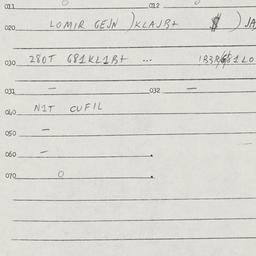 011 012
020 LOMIR GEJN ) KLAJB+ ) JA
030 280T G81KL1B+ ...
031 — 032 —
040 N1T CUFIL
050 —
060 — .
070 0 .